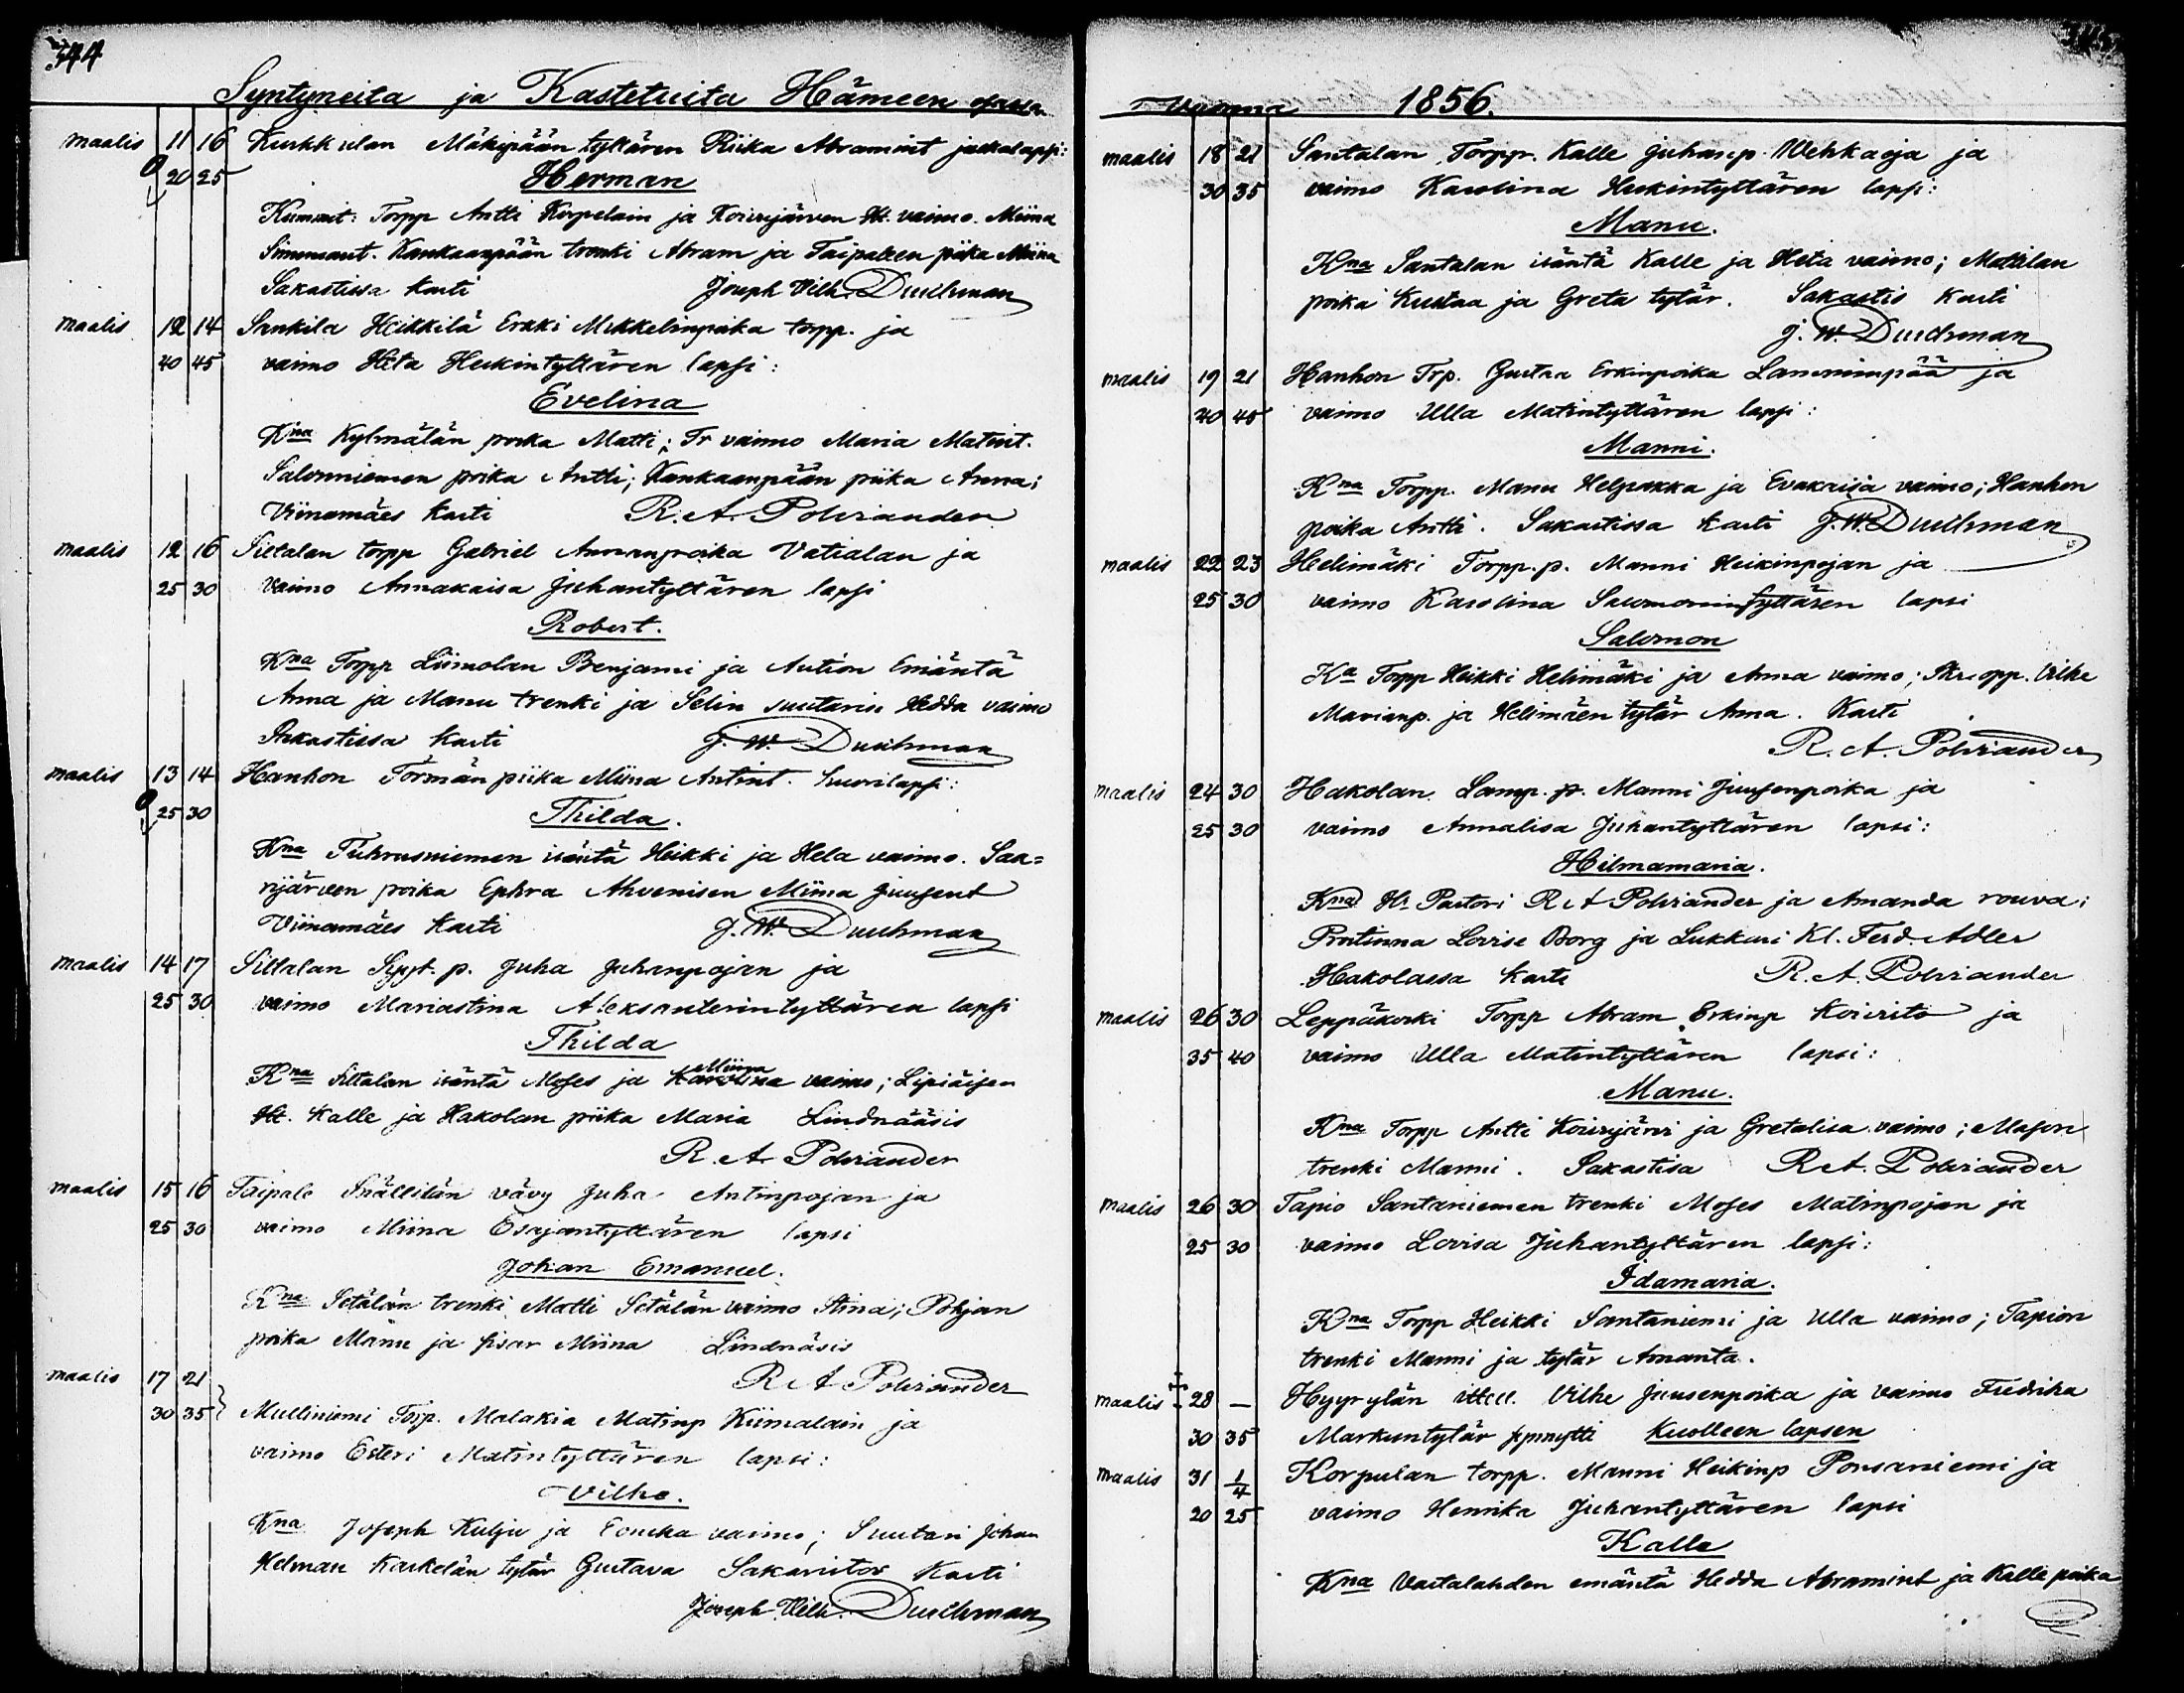 344
Syntyneita ja Kastetuita Hämeen osassa
maalis 11 16 Kurkkulan Mäkipään tyttären Riika Abramint jackalapsi:
20 25 Herman
Kummit: Torpp Antti Korpelain ja Koirijärven Ht. vaimo. Miina
Simonsant. Kankaanpään trenki Abram ja Taipaleen piika Miina
Sakastissa kasti Joseph Vilh. Duchman
maalis 12 14 Sankila Heikkilä Erkki Mikkelinpoika torpp. ja
40 45 vaimo Heta Heikintyttären lapsi:
Evelina
Kna Kylmälän poika Matti; Tr vaimo Maria Matint.
Salonniemen poika Antti; Kankaanpään piika Anna;
Viinamäes kasti R. A. Polviander
maalis 12 16 Siltalan torpp Gabriel Annanpoika Vatialan ja
25 30 vaimo Annakaisa Juhantyttären lapsi
Robert.
Kna Torpp Liimolan Benjami ja Aution Emäntä
Anna ja Manu trenki ja Selin suutarin Hedda vaimo
Sakastissa kasti J. W. Duchman
maalis 13 14 Hanhon Törmän piika Miina Antint. huorilapsi:
25 30 Thilda.
Kna Tuhrusniemen isäntä Heikki ja Hela vaimo. Saa=
rijärven poika Ephra Ahvenisen Miina Juusent
Viinamäes kasti J. W. Duchman
maalis 14 17 Siltalan Sypt. p. Juha Juhanpojan ja
25 30 vaimo Mariastina Aleksanterintyttären lapsi
Thilda
Miina
Kna Siltalan isäntä Moses ja Karolina vaimo; Lipiäisen
Ht. Kalle ja Hakolan piika Maria Lindnääsis
R. A. Polviander
maalis 15 16 Taipale Snällilän vävy Juha Antinpojan ja
25 30 vaimo Miina Esajantyttären lapsi
Johan Emanuel.
Kna Setälän trenki Matti Setälän vaimo Stina; Pohjan
poika Manu ja sisar Miina Lindnäsis
R A Polviander
maalis 17 21
30 35 Mulliniemi Torp. Malakia Matinp Kiimalain ja
vaimo Esteri Matintyttären lapsi:
Vilho.
Kna Joseph Kulju ja vaimo; Suutari Johan
Helman Kaskelän tytär Gustava kasti
Joseph Vilh. Duchman
vuonna 1856.
maalis 18 21 Santalan Torpp. Kalle Juhanp Wehkaoja ja
30 35 vaimo Karolina Heikintyttären lapsi:
Manu.
Kna Santalan isäntä Kalle ja Heta vaimo; Mattilan
poika Kustaa ja Greta tytär. Sakastis kasti
J. W. Duchman
maalis 19 21 Hanhon Trp. Gustaa Erkinpoika Lamminpää ja
40 45 vaimo Ulla Matintyttären lapsi:
Manni.
Kna Torpp. Manu Helpakka ja Evakaisa vaimo; Hanhon
poika Antti. Sakastissa kasti J. W. Duchman
maalis 22 23 Helimäki Torpp. p. Manni Heikinpojan ja
25 30 vaimo Karolina Salomonintyttären lapsi
Salomon
Ka Torpp Heikki Helimäki ja Anna vaimo; Skr. opp. Vilhe
Marianp. ja Helimäen tytär Anna. Kasti
R. A. Polviander
maalis 24 30 Hakolan Lamp. p. Manni Juusenpoika ja
25 30 vaimo Annalisa Juhantyttären lapsi:
Hilmamaria.
Kna Hr Pastori R A Polviander ja Amanda rouva;
Prostinna Lovise Borg ja Lukkari Kl. Ferd. Adler
Hakolassa kasti R. A. Polviander
maalis 26 30 Leppäkoski Torpp Abram Erkinp Koiristo ja
35 40 vaimo Ulla Matintyttären lapsi:
Manu.
Kna Torpp Antti Koirijärvi ja Gretalisa vaimo; Mason
trenki Manni. Sakastisa R A. Polviander
maalis 26 30 Tapio Santaniemen trenki Moses Matinpojan ja
25 30 vaimo Lovisa Juhantyttären lapsi:
Idamaria.
Kna Torpp Heikki Santaniemi ja Ulla vaimo; Tapion
trenki Manni ja tytär Amanta.
maalis 28 — Hyyrylän Ittell. Vilhe Juusenpoika ja vaimo Fredrika
30 35 Markuntytär synnytti kuolleen lapsen
maalis 31 1/4 Korpulan torpp. Manni Heikinp Ponsaniemi ja
20 25 vaimo Henrika Juhantyttären lapsi
Kalle
Kna Vastalahden emäntä Hedda Abramint ja Kalle poika